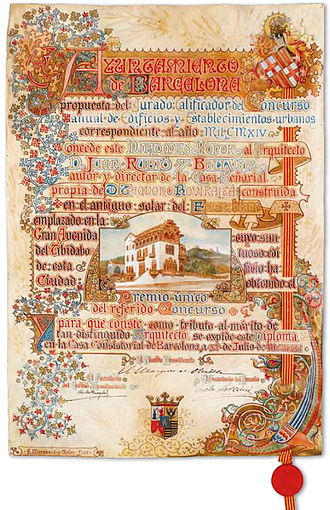 Ayuntamiento
de Barcelona
propuesta del Jurado Calificador del Concurso
anual de edificios y establecimientos urbanos
correspondiente al año MCMXIV
concede este Diploma de Honor, al Arquitecto
D. Juan Rubió y Bellver
autor y director de la Casa Señorial
propia de D. Teodoro Roviralta construida
en el antiguo solar del
emplazado en la
Gran Avenida
del Tibidabo
de esta
Ciudad:
cuyo sun-
tuoso edi-
ficio ha
obtenido el
Premio único
del referido Concurso
Y para que conste como tributo al mérito de
tan distinguido Arquitecto, se expide este Diploma,
en la Casa Consistorial de Barcelona, a de Julio de